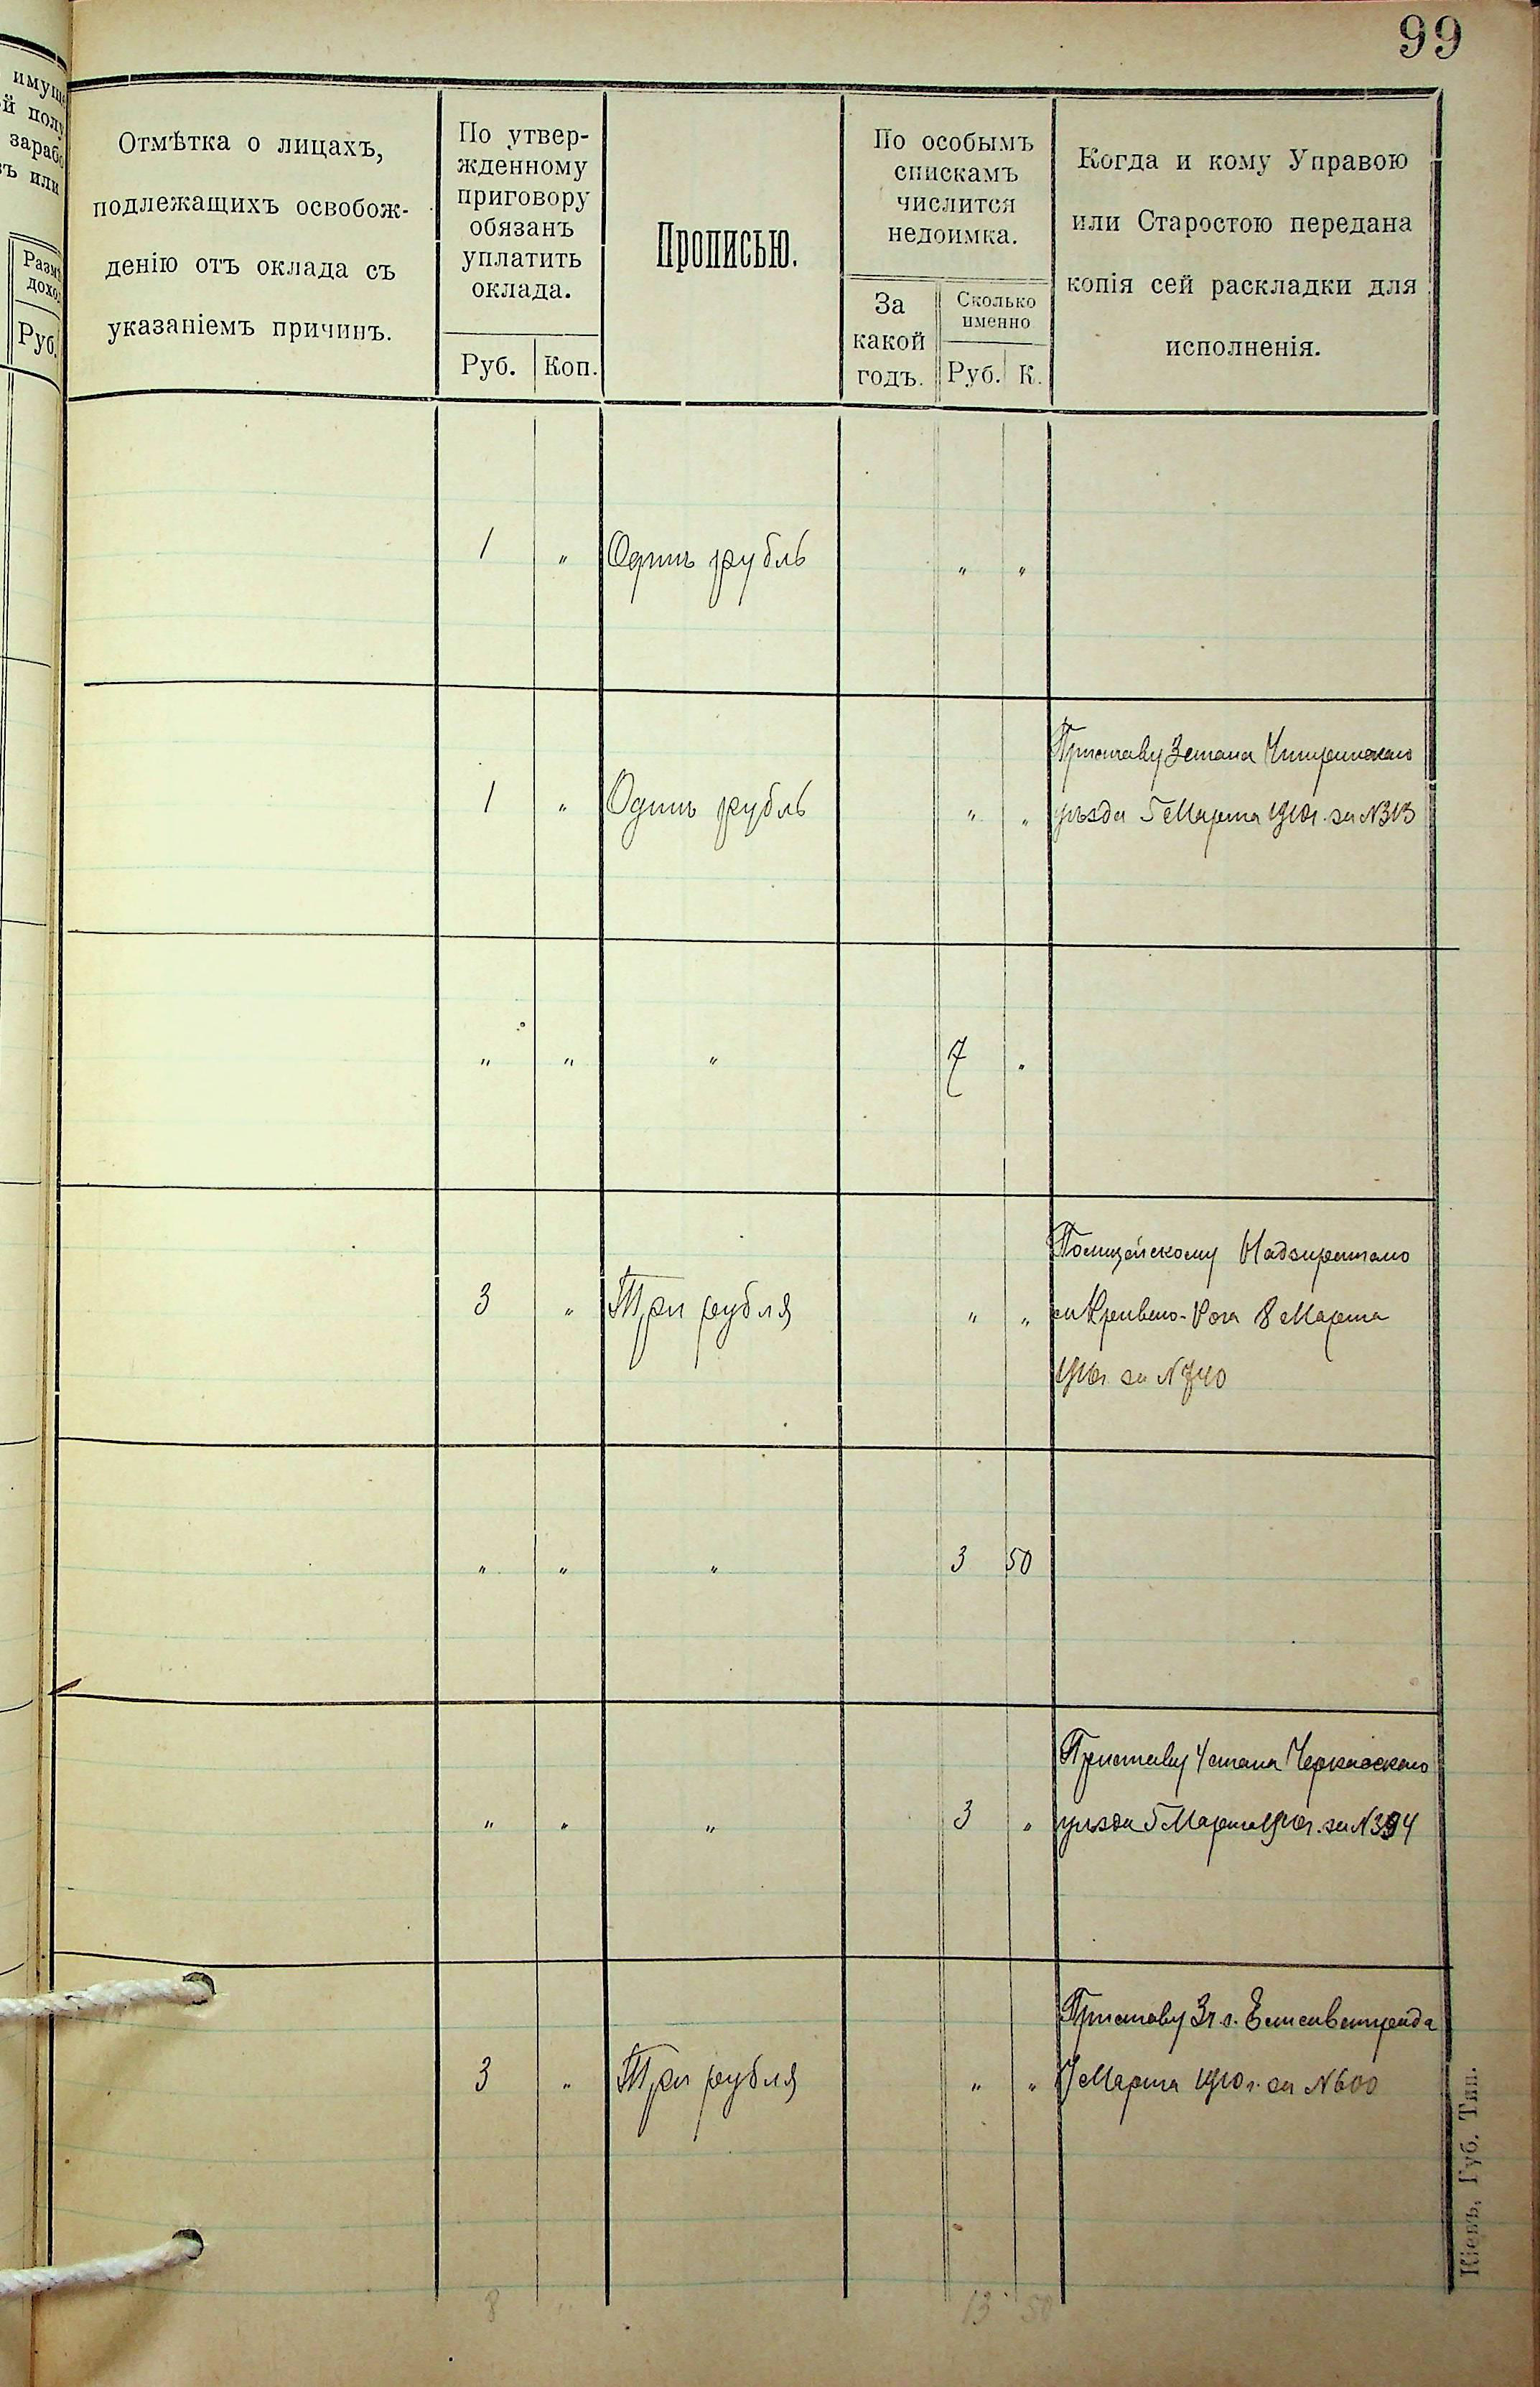 99
имуще
й полу
зарабо
въ или
Разм
дохо
Руб.
Отмѣтка о лицахъ,
подлежащихъ освобож-
денію отъ оклада съ
указаніемъ причинъ.
По утвер-
жденному
приговору
обязанъ
уплатить
оклада.
Руб. Коп.
Прописью.
По особымъ
спискамъ
числится
недоимка.
За
какой
годъ.
Сколько
именно
Руб. К.
Когда и кому Управою
или Старостою передана
копія сей раскладки для
исполненія.
1 " Одинъ рубль " "
Приставу 3 стана Чигиринскаго
1 " Одинъ рубль " " уѣзда 5 Марта 1910г. за №313
" " " 7 "
Полицейскому Надзирателю
3 " Три рубля " " м Кривого-Рога 8 Марта
1910г. за №740
" " " 3 50
Приставу 4 стана Черкасскаго
" " " 3 " уѣзда 5 Марта 1910г. за №394
Приставу 3ч. г. Елисаветграда
3 " Три рубля " " 7 Марта 1910 г. за №600
8 " 13 50
Кіевъ, Губ. Тип.